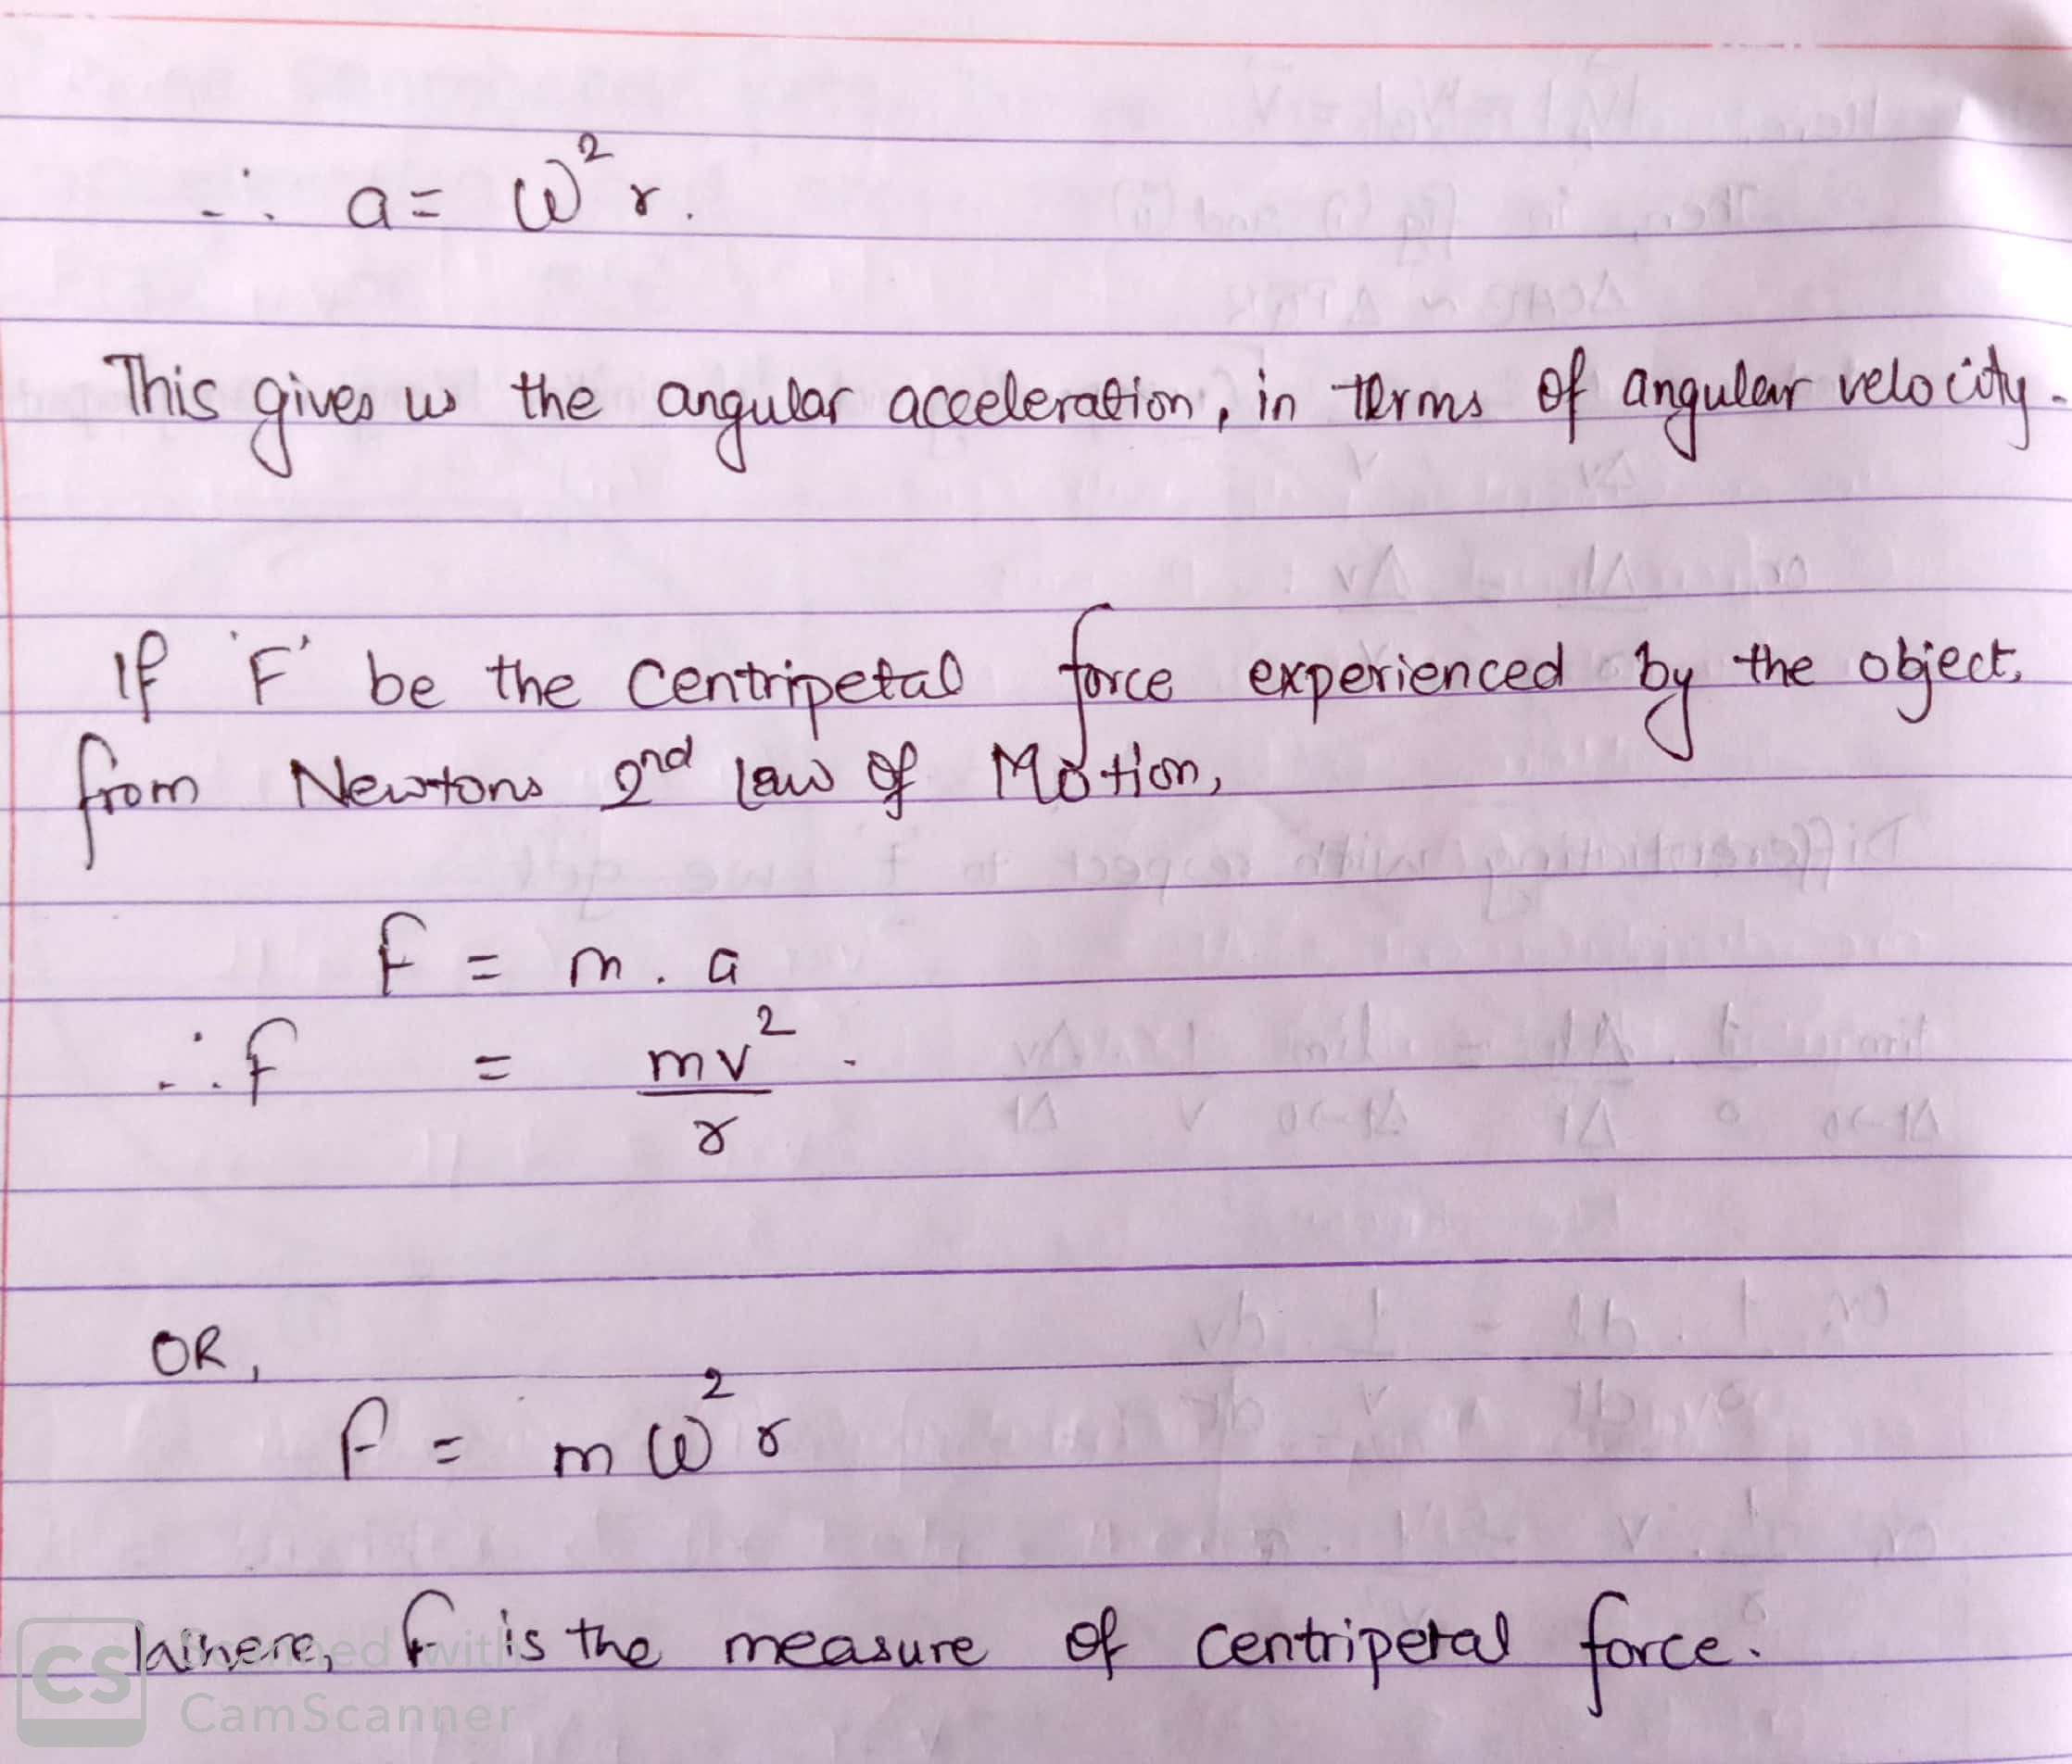 ∴ a = ω² r.
This gives us the angular acceleration, in terms of angular velocity.
If 'F' be the centripetal force experienced by the object,
from Newtons 2nd Law of Motion,
F = m . a
∴ F = mv² / r .
OR,
F = m ω² r
Where, F is the measure of centripetal force.
CS Scanned with
CamScanner